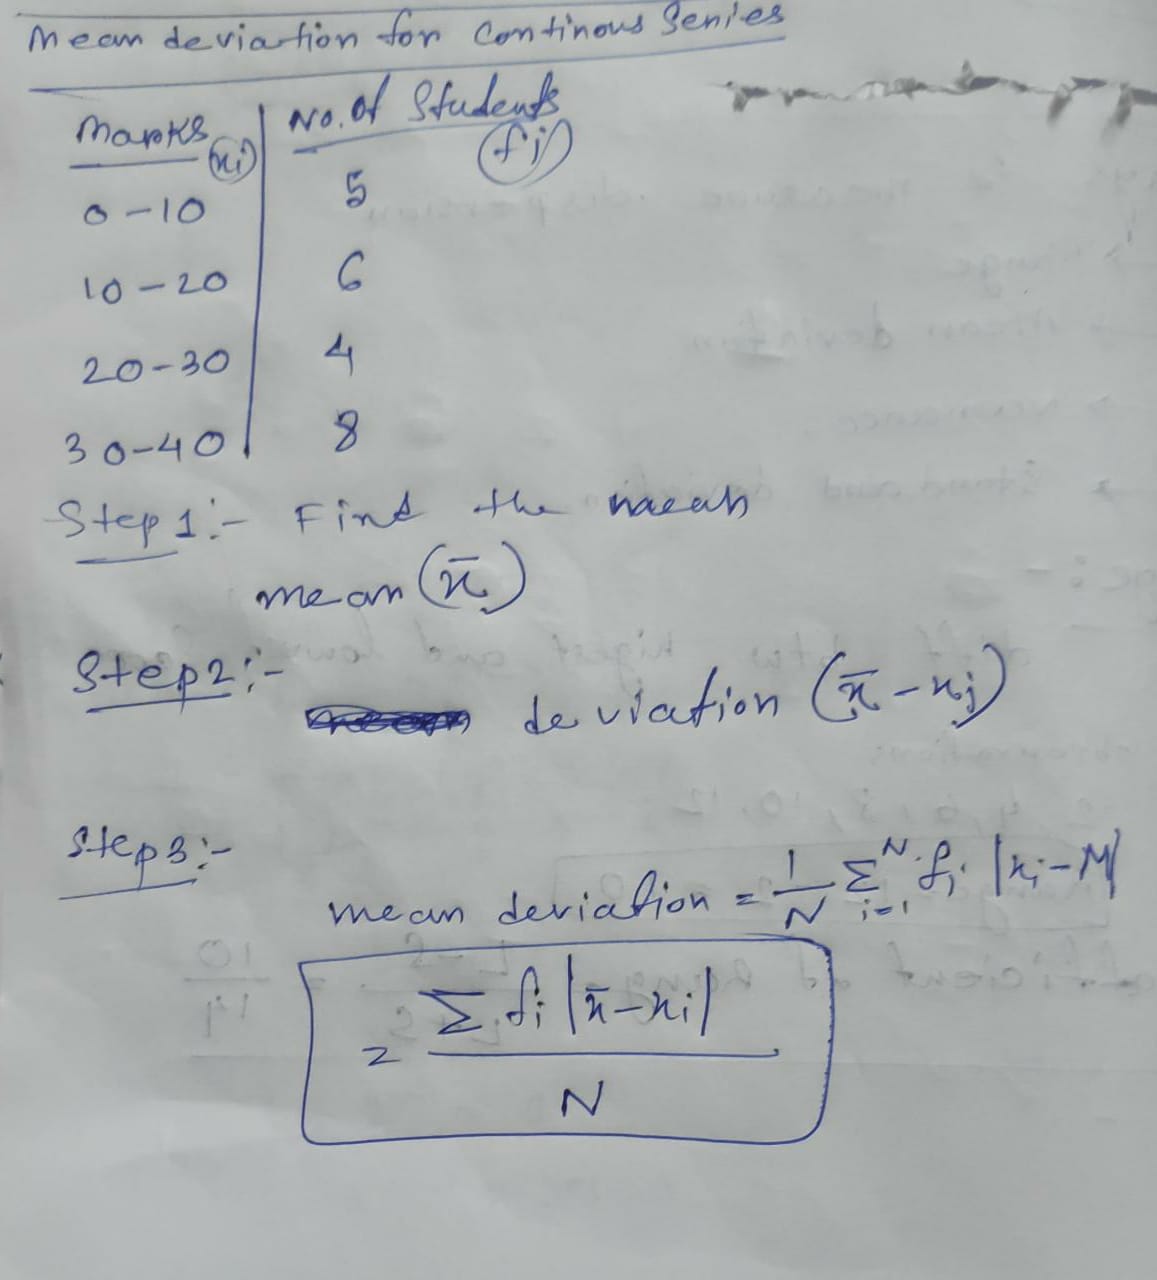 Mean deviation for Continous Series
Marks (xi) | No. of Students (fi)
0-10 | 5
10-20 | 6
20-30 | 4
30-40 | 8
Step 1:- Find the mean
mean (x̄)
Step2:-
deviation (x̄-xi)
Step3:-
mean deviation = 1/N Σ^N_i=1 fi |xi-M|
= Σ fi |x̄-xi| / N